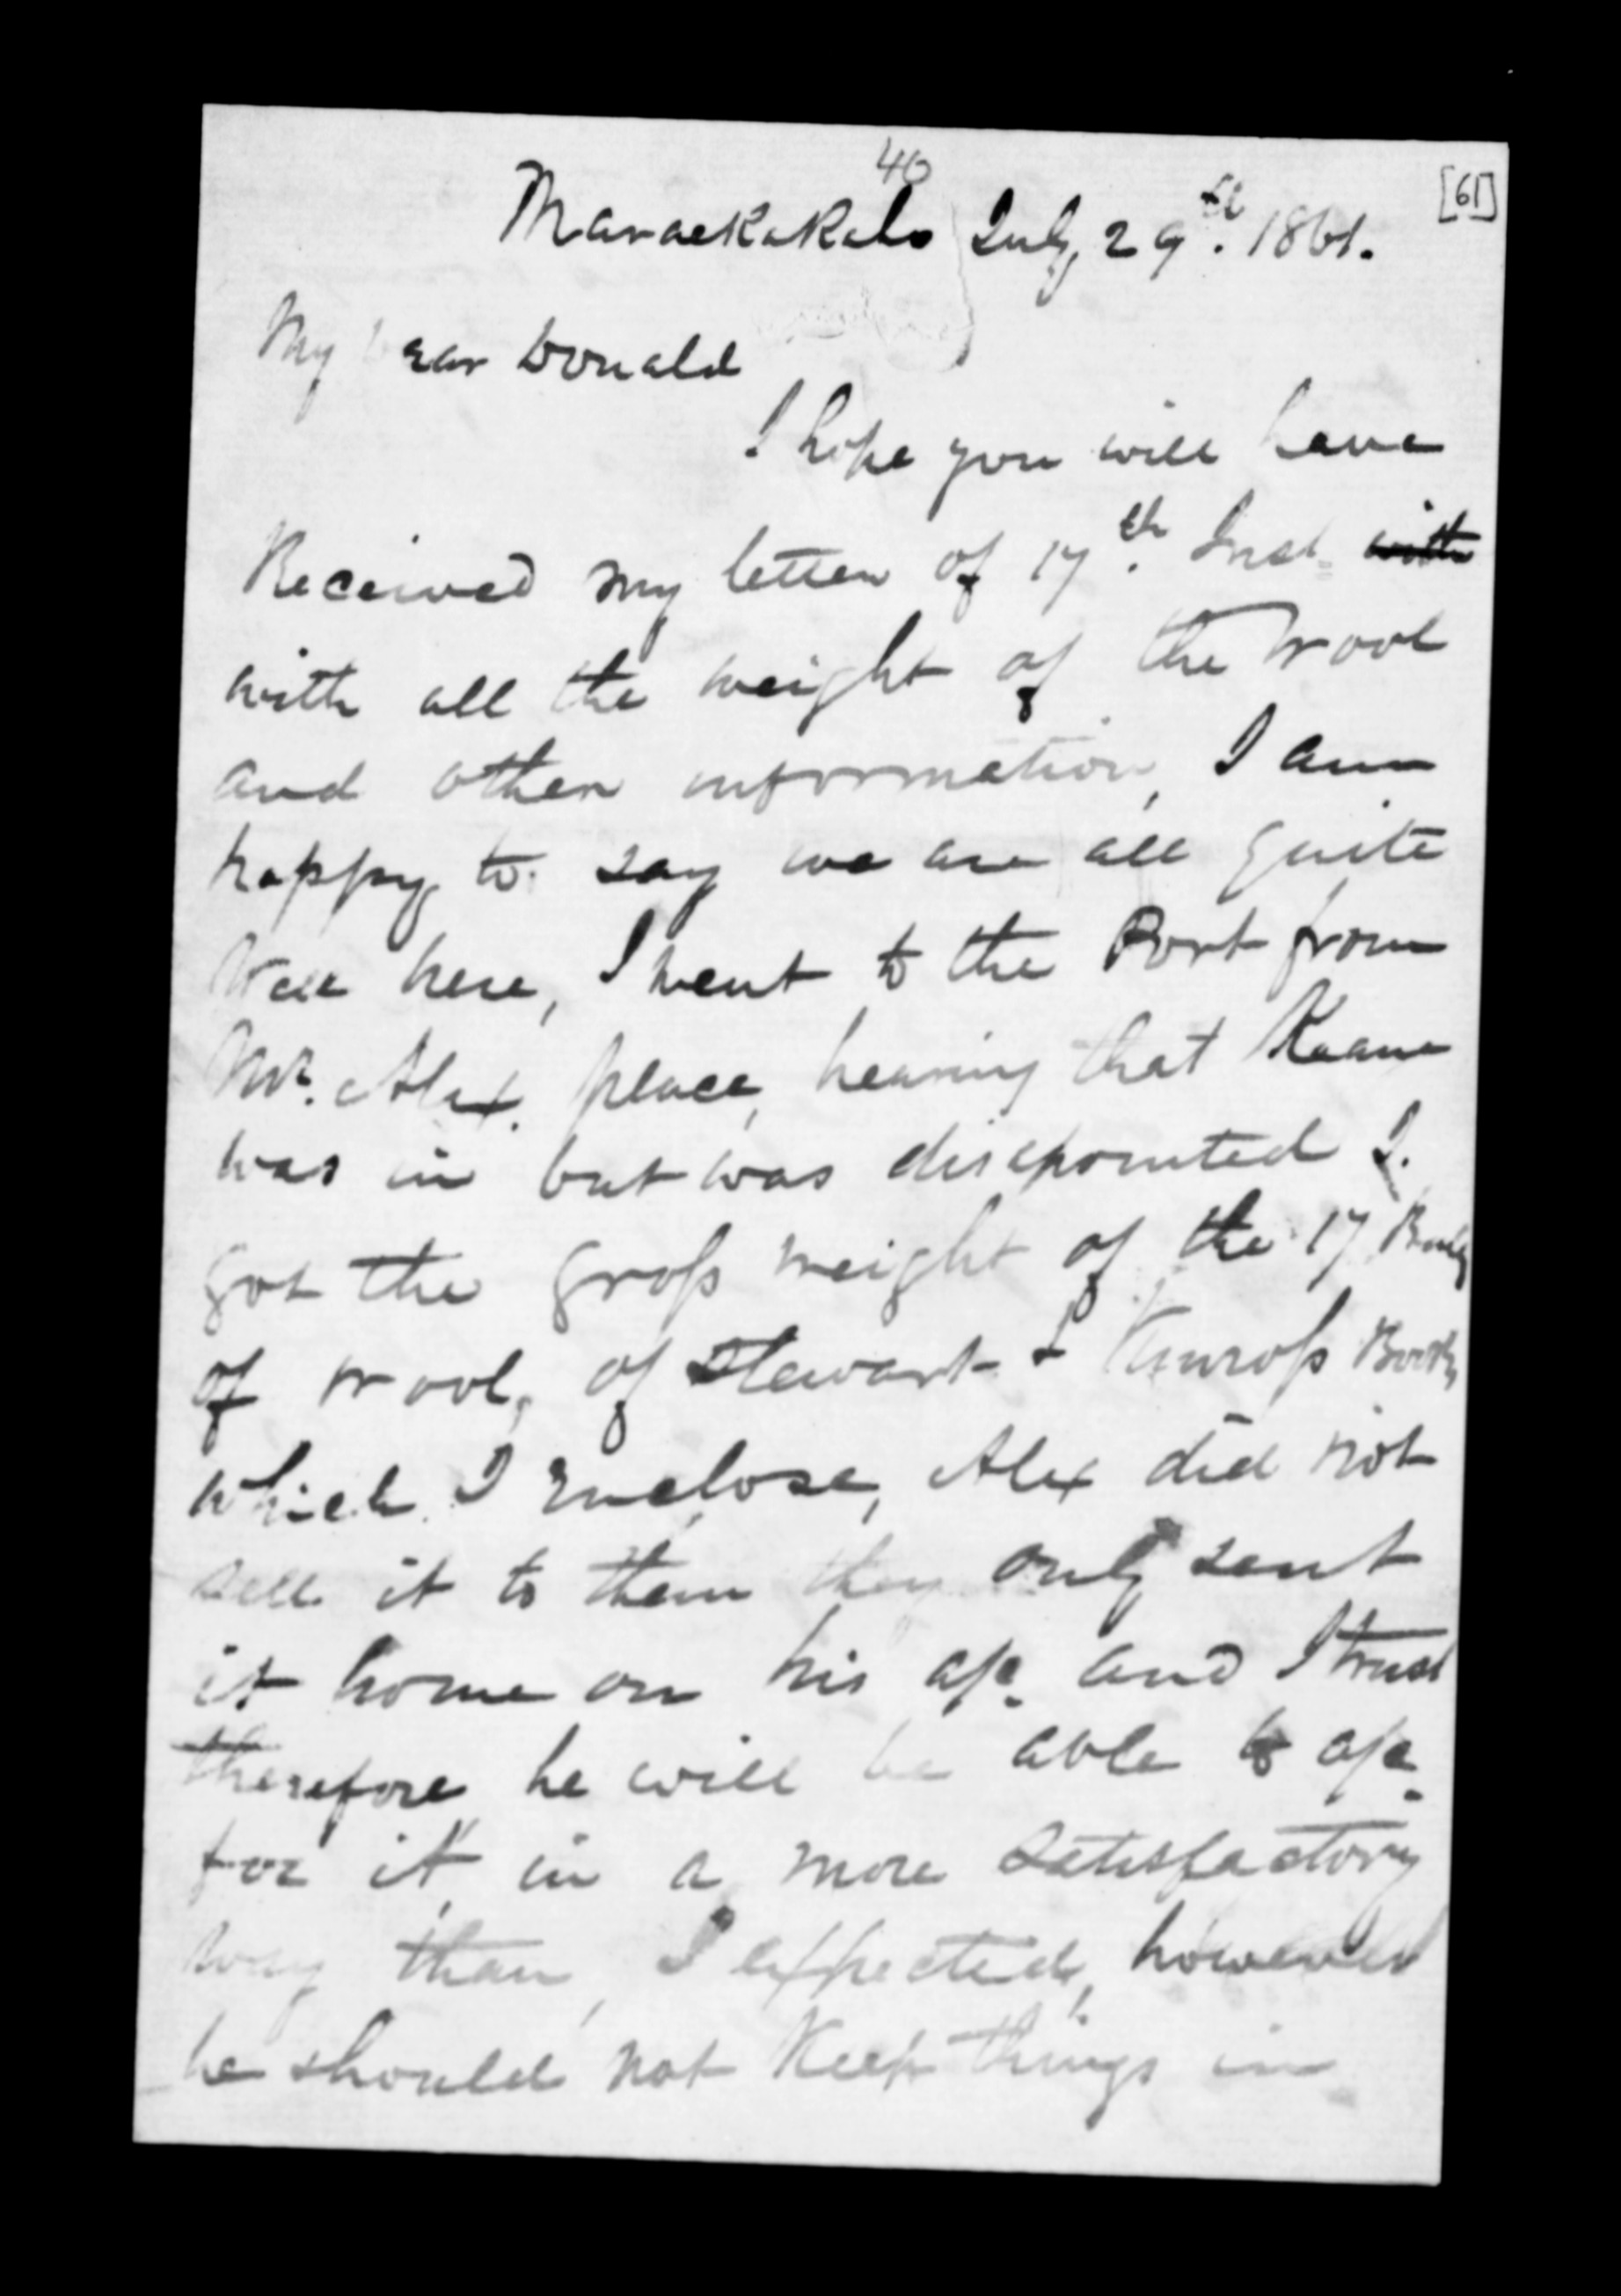 40
[61]
Maraekakaho July, 29th. 1861.
My Dear Donald
I hope you will have
Received my letter of 17th. Inst. with
with all the weight of the Wool
and other information, I am
happy to say we are all quite
Well here, I went to the Port from
Mr. Alex. place, hearing that
was in but was disapointed I.
got the gross weight of the 17
of wool, of Stewart & Kinross Books
which I Enclose, Alex did not
sell it to them they only sent
it home on his a/c. and I trust
therefore he will be able to a/c.
for it, in a more satisfactory
way than, I expected, however
he should not Keep things in